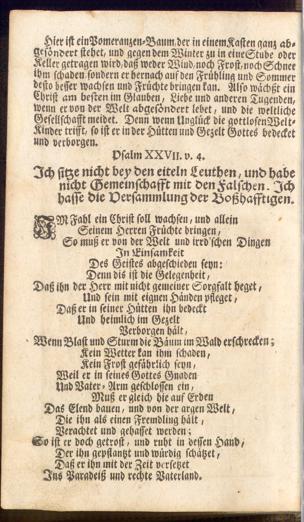 Hier ist ein Pomeranzen-Baum, der in einem Kasten ganz ab-
gesöndert stehet, und gegen dem Winter zu in eine Stube oder
Keller getragen wird, daß weder Wind, noch Frost, noch Schnee
ihm schaden, sondern er hernach auf den Frühling und Sommer
desto besser wachsen und Früchte bringen kan. Also wächßt ein
Christ am besten im Glauben, Liebe und anderen Tugenden,
wenn er von der Welt abgesöndert lebet, und die weltliche
Gesellschafft meidet. Denn wenn Unglück die gottlosen Welt-
Kinder trifft, so ist er in der Hütten und Gezelt Gottes bedecket
und verborgen.
Psalm XXVII. v. 4.
Ich sitze nicht bey den eiteln Leuthen, und habe
nicht Gemeinschafft mit den Falschen. Ich
hasse die Versammlung der Boßhafftigen.
IM Fahl ein Christ soll wachsen, und allein
Seinem Herren Früchte bringen,
So muß er von der Welt und irrd'schen Dingen
In Einsamkeit
Des Geistes abgeschieden seyn:
Denn dis ist die Gelegenheit,
Daß ihn der Herr mit nicht gemeiner Sorgfalt heget,
Und sein mit eignen Händen pfleget,
Daß er in seiner Hütten ihn bedeckt
Und heimlich im Gezelt
Verborgen hält,
Wenn Blast und Sturm die Bäum im Wald erschrecken;
Kein Wetter kan ihm schaden,
Kein Frost gefährlich seyn,
Weil er in seines Gottes Gnaden
Und Vater-Arm geschlossen ein,
Muß er gleich hie auf Erden
Das Elend bauen, und von der argen Welt,
Die ihn als einen Fremdling hält,
Verachtet und gehasset werden;
So ist er doch getrost, und ruht in dessen Hand,
Der ihn gepflantzt und würdig schätzet,
Daß er ihn mit der Zeit versetzet
Ins Paradeiß und rechte Vaterland.